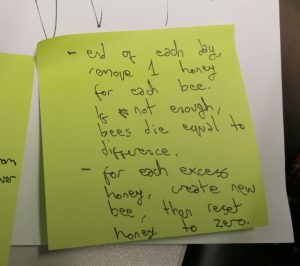 - end of each day,
remove 1 honey
for each bee.
If not enough,
bees die equal to
difference.
- for each excess
honey, create new
bee, then reset
honey to zero.
om
ver